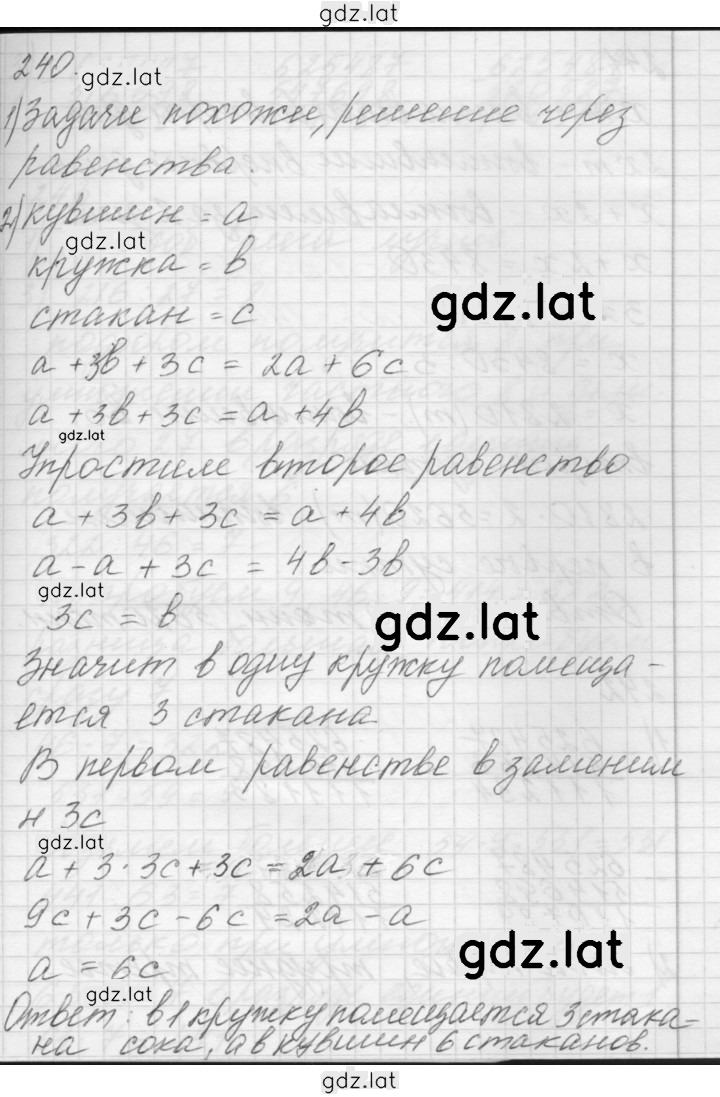 gdz.lat
240.
gdz.lat
1) Задачи похожи, решение через
равенства.
2) кувшин = а
gdz.lat
кружка = в
gdz.lat
стакан = с
а + 3в + 3с = 2а + 6с
а + 3в + 3с = а + 4в
gdz.lat
Упростим второе равенство
а + 3в + 3с = а + 4в
а - а + 3с = 4в - 3в
gdz.lat
3с = в
gdz.lat
Значит в одну кружку помеща-
ется 3 стакана
В первом равенстве в заменим
н 3с
gdz.lat
а + 3 · 3с + 3с = 2а + 6с
9с + 3с - 6с = 2а - а
gdz.lat
а = 6с
gdz.lat
Ответ: в 1 кружку помещается 3 стака-
на сока, а в кувшин 6 стаканов.
gdz.lat